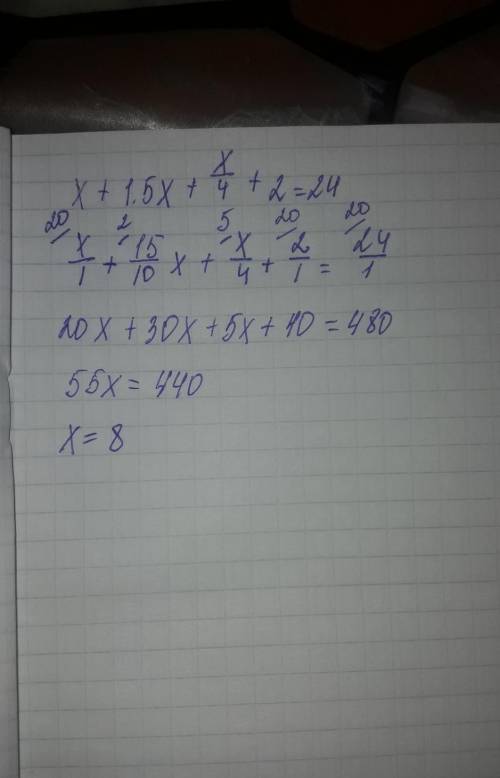 x + 1.5x + x/4 + 2 = 24
20 2 5 20 20
x/1 + 15/10 x + x/4 + 2/1 = 24/1
20x + 30x + 5x + 40 = 480
55x = 440
x = 8